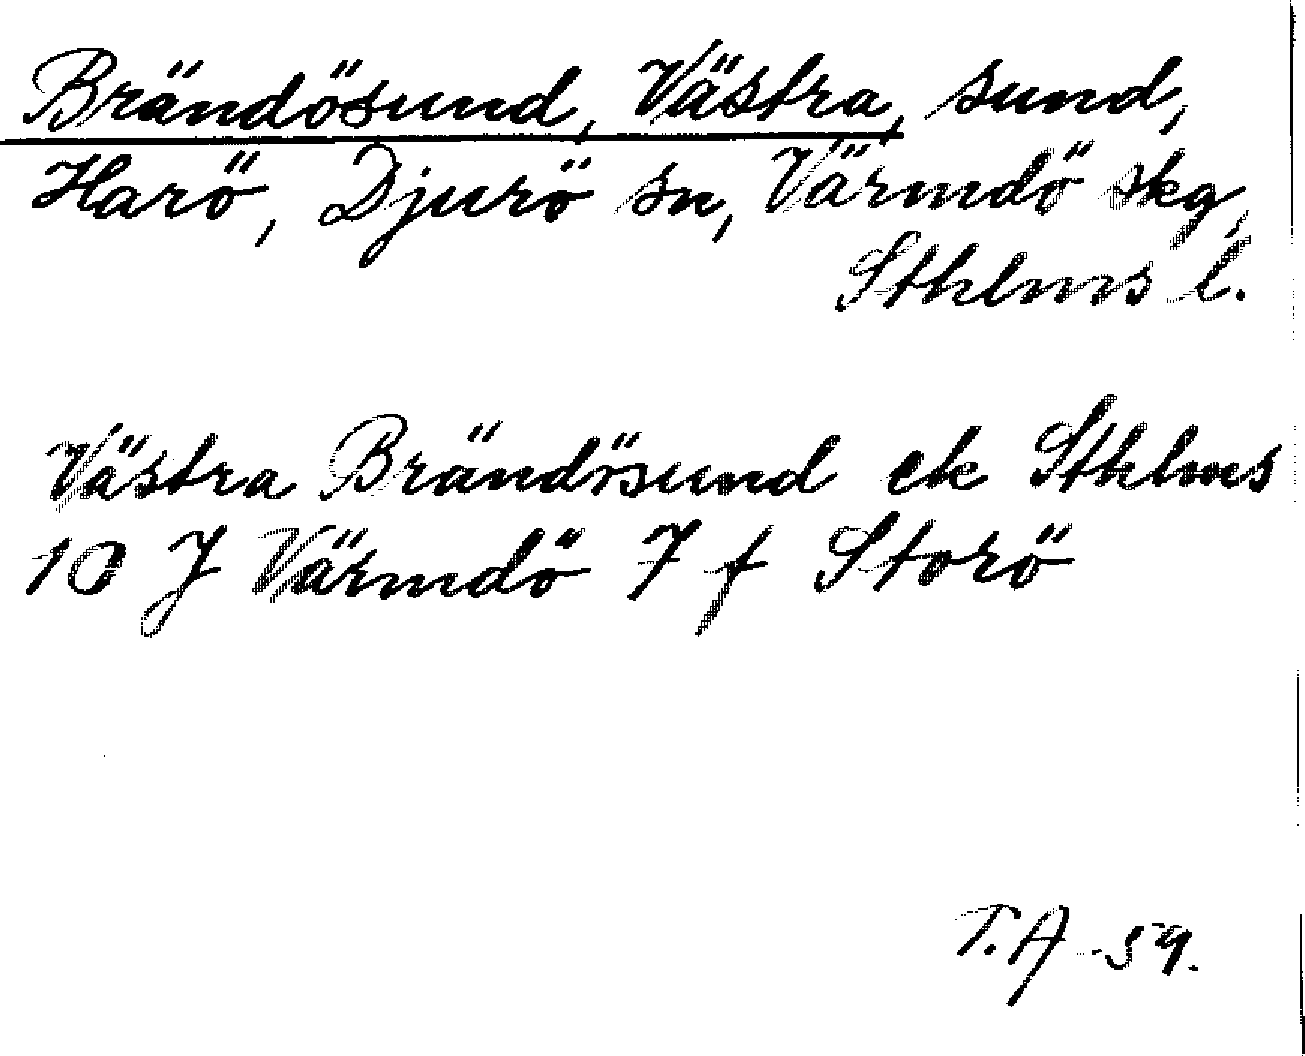 Brändösund, Västra, sund,
Harö, Djurö sn, Värmdö skg,
Sthlms l.
Västra Brändösund ek Sthlms
10 J Värmdö 7 f Storö
T.A -59.